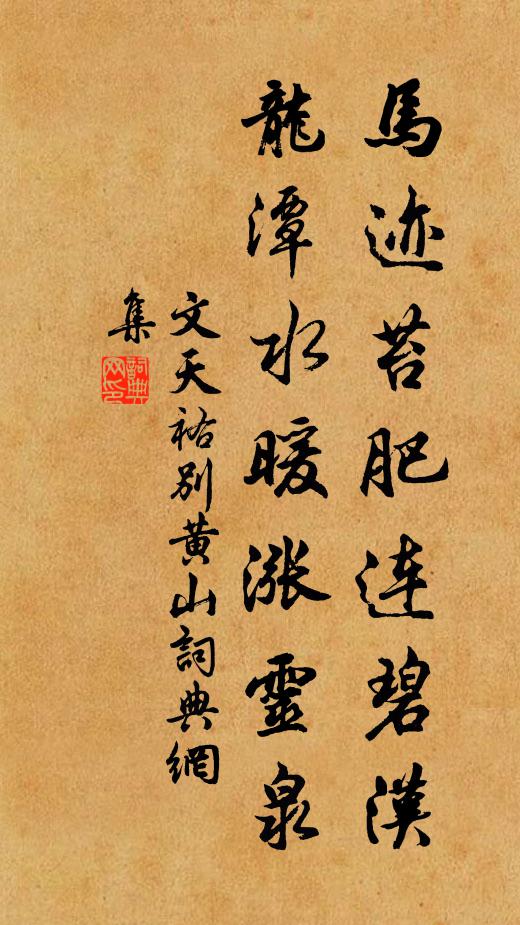 馬迹苔肥連碧漢
龍潭水暖漲靈泉
文天祐別黃山詞典網
集
詞典網印